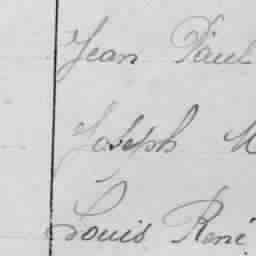 Jean Paul
Joseph M
Louis René